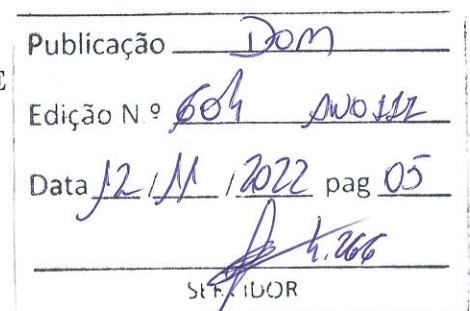 Publicação DOM
E
Edição N.º 604 ANO III
Data 12 / 11 / 2022 pag 05
4.266
SERVIDOR